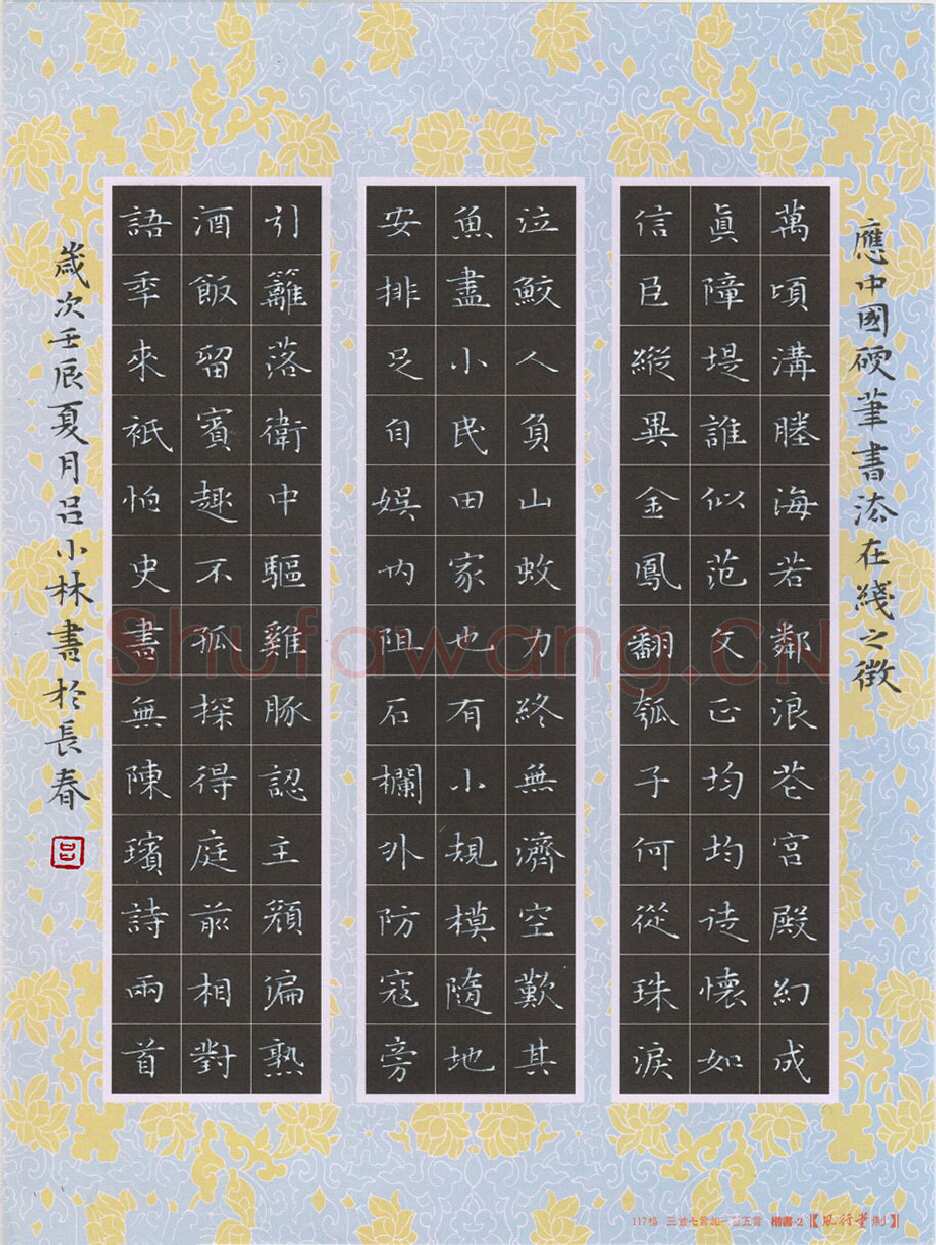 應中國硬筆書法在綫之徵
萬頃溝塍海若鄰浪花宮殿幻成
眞障堤誰似范文正均均徒懷如
信臣縱異金鳳翻瓠子何從珠淚
泣鮫人負山蚊力終無濟空歎其
魚盡小民田家也有小規模隨地
安排足自娯內阻石欄外防寇旁
引籬落衛中驅雞豚認主顏偏熟
酒飯留賓趣不孤探得庭前相對
語季來衹怕史畫無陳璸詩兩首
歲次壬辰夏月呂小林書於長春
呂
Shufawang.CN
117格 三首七言加一首五言 楷書-2【風行堂制】